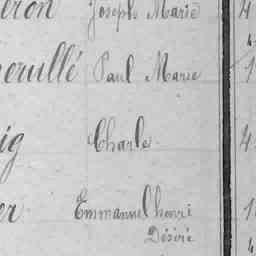 éron Joseph Marie 4
erullé Paul Marie 1
ig Charle 4
er Emmanuel henri 1
Désiré
4